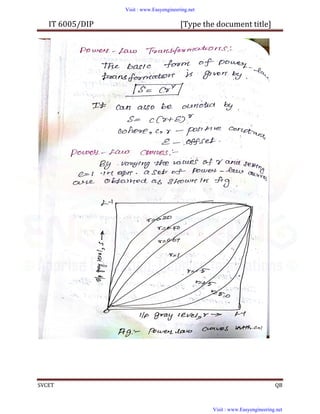 Visit : www.Easyengineering.net
IT 6005/DIP [Type the document title]
Power - Law Transformations:
The basic form of power - law
transformation is given by.
S = Cr^γ
It can also be denoted by
S = c(r+ε)^γ
where, c, γ - positive constant
ε - offset.
Power - Law Curves:-
By varying the values of γ and setting
c=1 in eqn. a set of power - law curves
are obtained as shown in fig
L-1
γ=0.20
γ=1
o/p gray level, S →
i/p gray level, r → L-1
Fig:- Power law curves with c=1
SVCET QB
Visit : www.Easyengineering.net